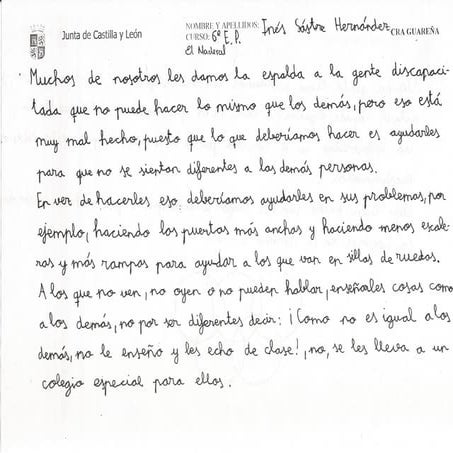 Junta de Castilla y León
NOMBRE Y APELLIDOS: Inés Sástre Hernández CRA GUAREÑA
CURSO: 6º E.P.
El Nadecal
Muchos de nosotros les damos la espalda a la gente discapaci-
tada que no puede hacer lo mismo que los demás, pero eso está
muy mal hecho, puesto que lo que deberíamos hacer es ayudarles
para que no se sientan diferentes a las demás personas.
En vez de hacerles eso, deberíamos ayudarles en sus problemas, por
ejemplo, haciendo las puertas más anchas y haciendo menos escale-
ras y más rampas para ayudar a los que van en sillas de ruedas.
A los que no ven, no oyen o no pueden hablar, enseñarles cosas como
a los demás, no por ser diferentes decir: ¡Como no es igual a los
demás, no le enseño y les echo de clase!, no, se les lleva a un
colegio especial para ellos.